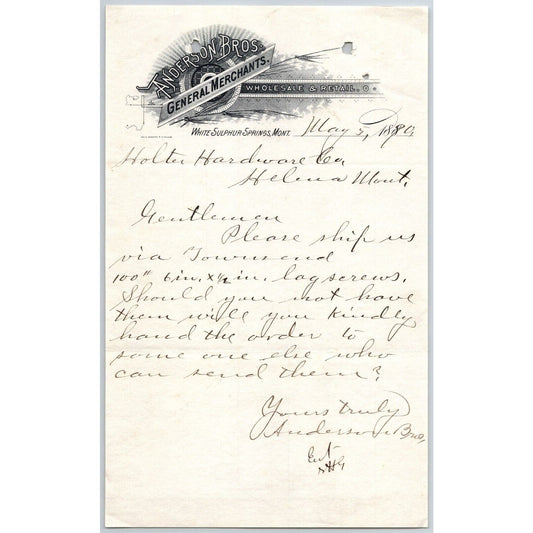 ANDERSON BROS.
GENERAL MERCHANTS.
WHOLESALE & RETAIL.
WHITE SULPHUR SPRINGS, MONT. May 5, 1890
Holter Hardware Co
Helena Mont.
Gentlemen
Please ship us
via Townsend
100" 6 in. x ½ in. lag screws.
Should you not have
them will you kindly
hand the order to
some one else who
can send them?
Yours truly
Anderson Bros,
Ent